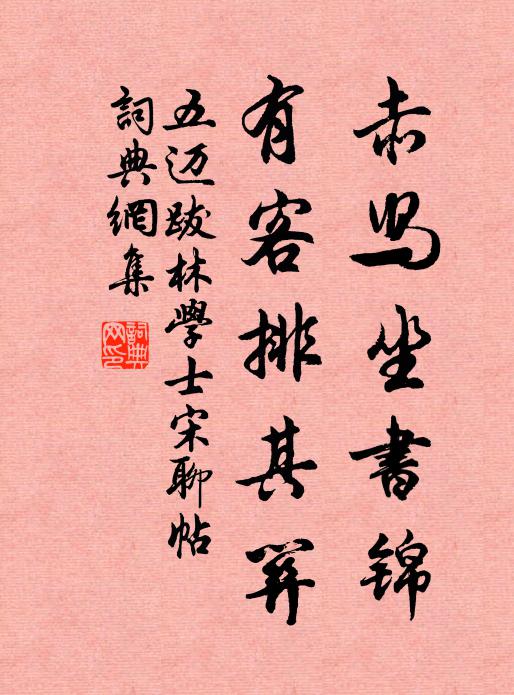 赤舄坐書錦
有客排其
五迈跋林學士宋聊帖
詞典網集
詞典網印